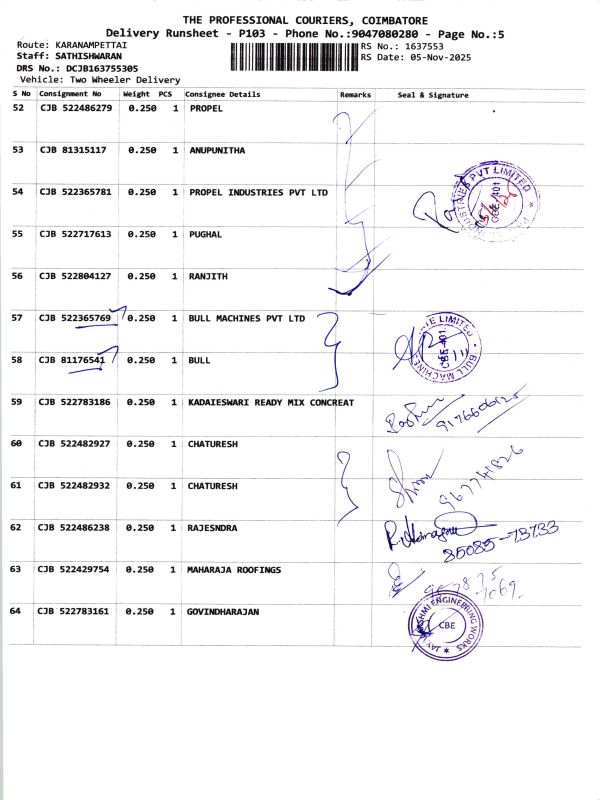 THE PROFESSIONAL COURIERS, COIMBATORE
Delivery Runsheet - P103 - Phone No.:9047080280 - Page No.:5
Route: KARANAMPETTAI RS No.: 1637553
Staff: SATHISHWARAN RS Date: 05-Nov-2025
DRS No.: DCJB163755305
Vehicle: Two Wheeler Delivery
S No Consignment No Weight PCS Consignee Details Remarks Seal & Signature
52 CJB 522486279 0.250 1 PROPEL
53 CJB 81315117 0.250 1 ANUPUNITHA
54 CJB 522365781 0.250 1 PROPEL INDUSTRIES PVT LTD
55 CJB 522717613 0.250 1 PUGHAL
56 CJB 522804127 0.250 1 RANJITH
57 CJB 522365769 0.250 1 BULL MACHINES PVT LTD
58 CJB 81176541 0.250 1 BULL
59 CJB 522783186 0.250 1 KADAIESWARI READY MIX CONCREAT
9176606125
60 CJB 522482927 0.250 1 CHATURESH
61 CJB 522482932 0.250 1 CHATURESH
62 CJB 522486238 0.250 1 RAJESNDRA
63 CJB 522429754 0.250 1 MAHARAJA ROOFINGS
64 CJB 522783161 0.250 1 GOVINDHARAJAN
CBE